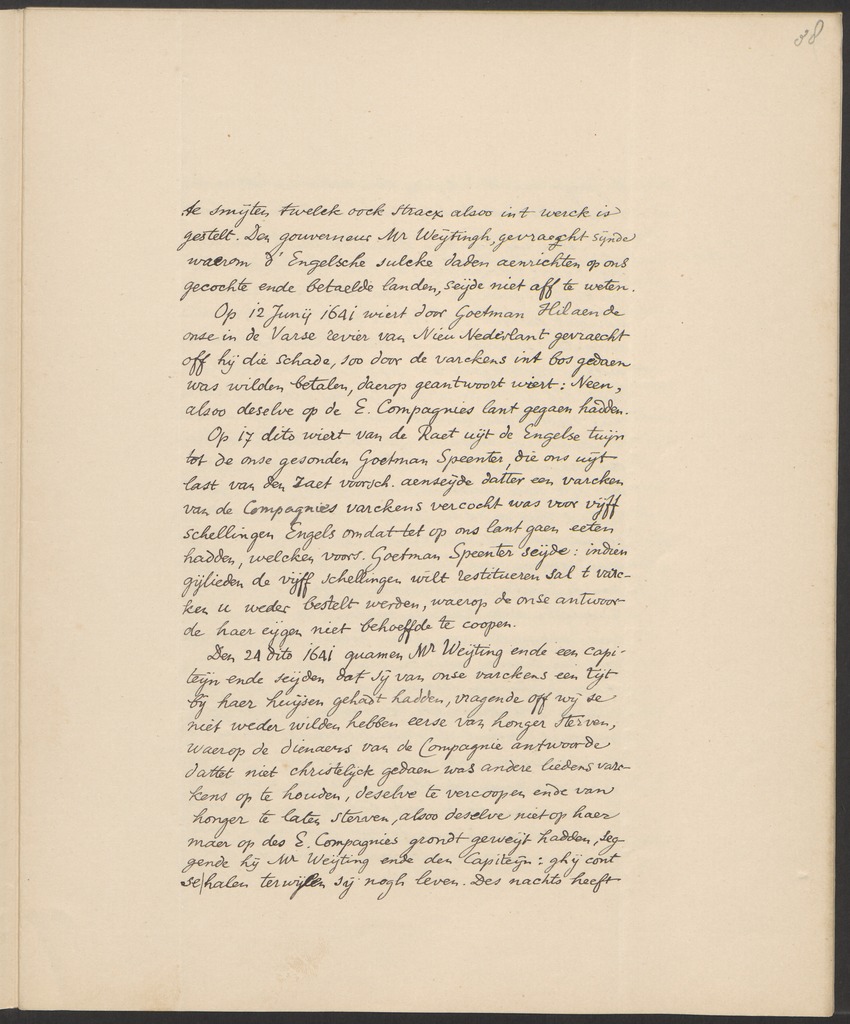 38
te smijten twelck oock straex alsoo int werck is
gestelt. Den gouverneur Mr Weytingh, gevraecht sijnde
waerom d' Engelsche sulcke daden aenrichten op ons
gecochte ende betaelde landen, seijde niet aff te weten.
Op 12 Junij 1641 wiert door Goetman Hil aen de
onse in de Varse revier van Nieu Nederlant gevraecht
off hij die schade, soo door de varckens int bos gedaen
was wilden betalen, daerop geantwoort wiert: Neen,
alsoo deselve op de E. Compagnies lant gegaen hadden.
Op 17 dito wiert van de Raet uijt de Engelse tuijn
tot de onse gesonden Goetman Speenter, die ons uijt
last van den raet voorsch. aenseijde datter een varcken
van de Compagnies varckens vercocht was voor vijff
schellingen Engels omdattet op ons lant gaen eeten
hadden, welcken voors. Goetman Speenter seijde: indien
gijlieden de vijff schellingen wilt restitueren sal t varc-
ken u weder bestelt werden, waerop de onse antwoor
de haer eijgen niet behoeffde te coopen.
Den 24 dito 1641 quamen Mr Weijting ende een capi-
teijn ende seijden dat sij van onse varckens een tijt
bij haer huijsen gehadt hadden, vragende off wij se
niet weder wilden hebben eerse van honger sterven,
waerop de dienaers van de Compagnie antwoorde
dattet niet christelijck gedaen was andere liedens varc-
kens op te houden, deselve te vercoopen ende van
honger te laten sterven, alsoo deselve niet op haer
maer op des E. Compagnies grondt geweijt hadden, seg-
gende hij Mr Weijting ende den Capiteijn: ghij cont
se halen terwijlen sij nogh leven. Des nachts heeft